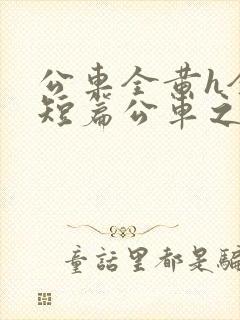 公车全黄h全
短篇公车之
童話里都是騙